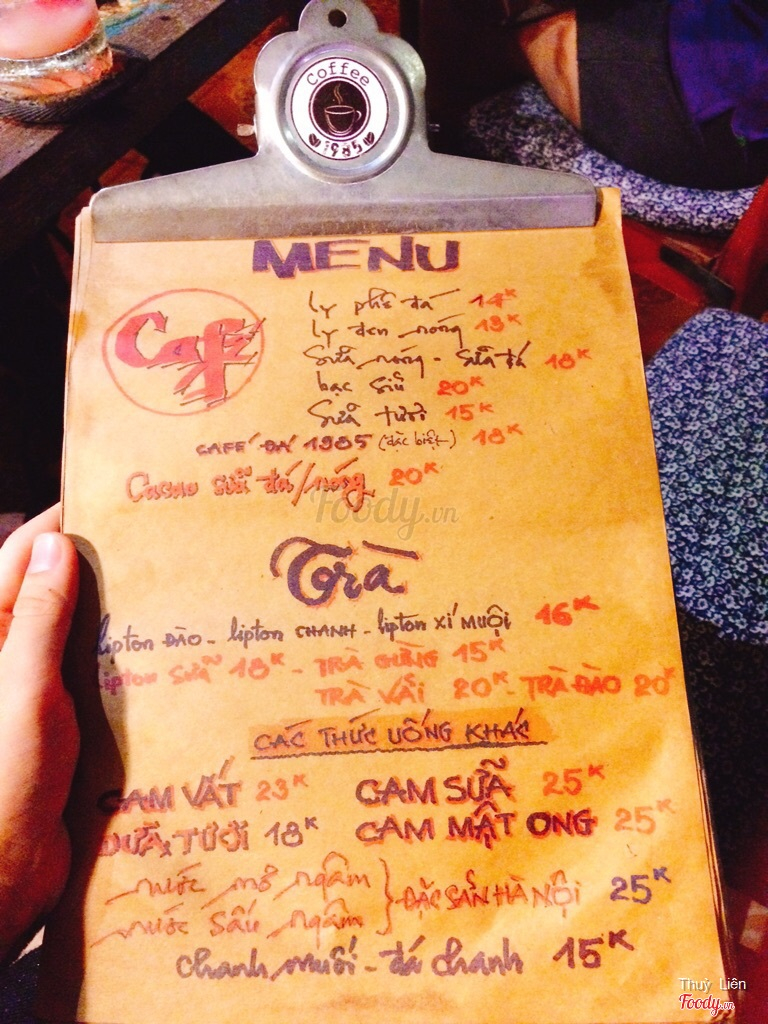 Coffee
1985
MENU
Café
ly phê đá 14K
ly đen nóng 13K
Sữa nóng - Sữa đá 18K
bạc siủ 20K
Sữa tươi 15K
CAFÉ ĐÁ 1985 (đặc biệt) 18K
Cacao sữa đá/nóng 20K
Foody.vn
Trà
lipton ĐÀO - lipton CHANH - lipton XÍ MUỘI 16K
lipton SỮA 18K - TRÀ GỪNG 15K
TRÀ VẢI 20K - TRÀ ĐÀO 20K
CÁC THỨC UỐNG KHÁC
CAM VẮT 23K CAM SỮA 25K
DỪA TƯƠI 18K CAM MẬT ONG 25K
nước mơ ngâm
nước sấu ngâm } ĐẶC SẢN HÀ NỘI 25K
chanh muối - đá chanh 15K
Thuỳ Liên
Foody.vn